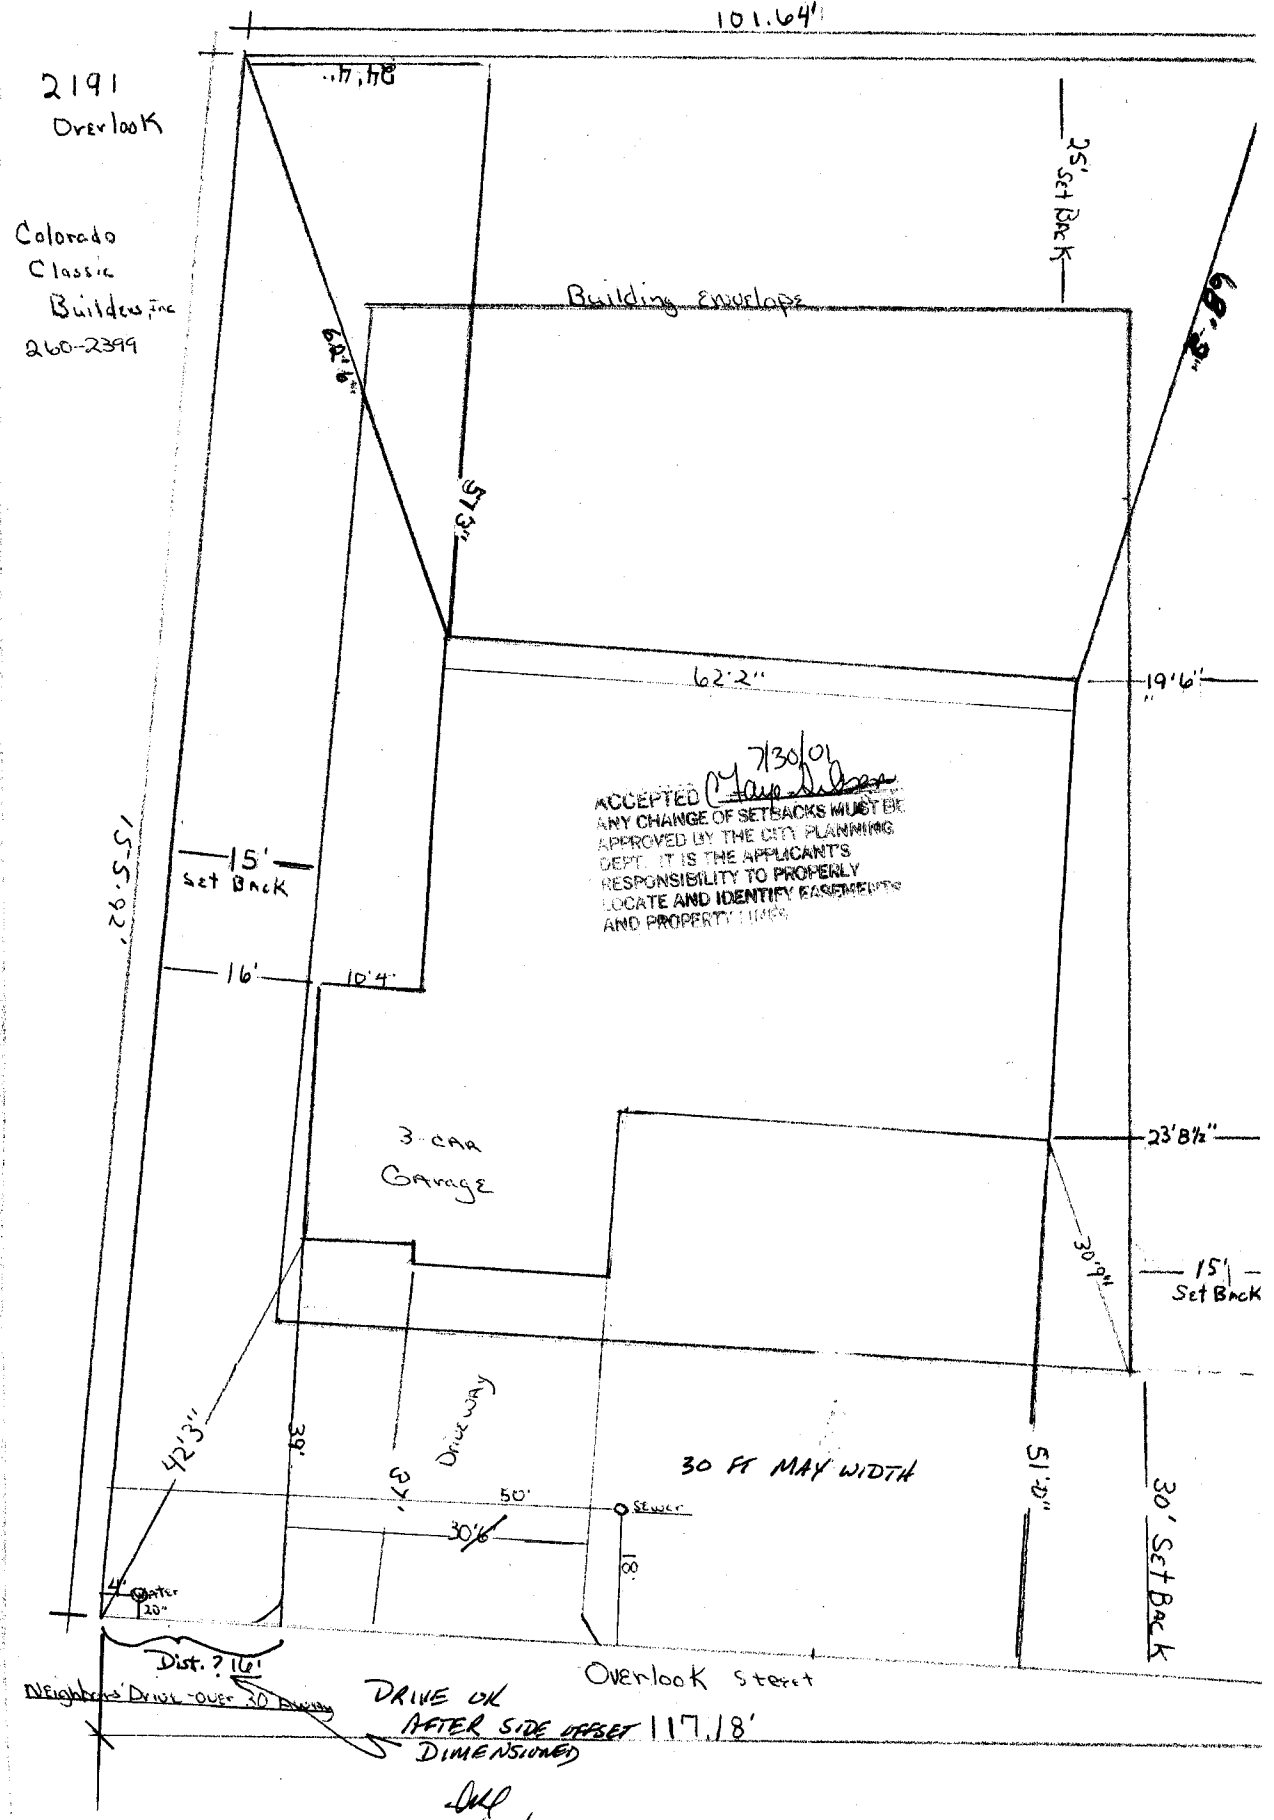 101.64'
24'4"
2191
Overlook
25' Set Back
Colorado
Classic
Builders, Inc
260-2399
Building Envelope
62'6"
68'-2"
57'3"
62'2"
19'6"
7/30/01
ACCEPTED
ANY CHANGE OF SETBACKS MUST BE
APPROVED BY THE CITY PLANNING
DEPT. IT IS THE APPLICANT'S
RESPONSIBILITY TO PROPERLY
LOCATE AND IDENTIFY EASEMENTS
AND PROPERTY LINES
155.92'
15'
Set Back
16'
10'4"
3-CAR
GArage
23'8½"
30'9"
15'
Set Back
42'3"
39'
37'
DriveWAy
30 FT MAX WIDTH
51'-0"
30' Set Back
50'
Sewer
30'6
18'
4'
Water
20"
Dist. ? 16'
Overlook Street
Neighbors' Drive - over 30 Away
DRIVE OK
AFTER SIDE OFFSET
117.18'
DIMENSIONED